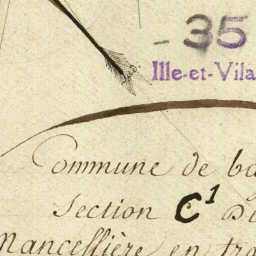 - 35
Ille-et-Vila
Commune de ba
Section C¹ Di
Mancellière en tro